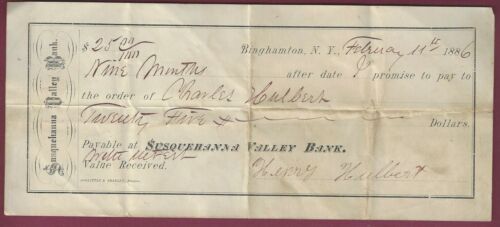 Susquehanna Valley Bank.
$ 25 00/100 Binghamton, N. Y., February 11th 1886
Nine Months after date I promise to pay to
the order of Charles Hulbert
Twenty Five Dollars.
Payable at SUSQUEHANNA VALLEY BANK.
with
Value Received. Henry Hulbert